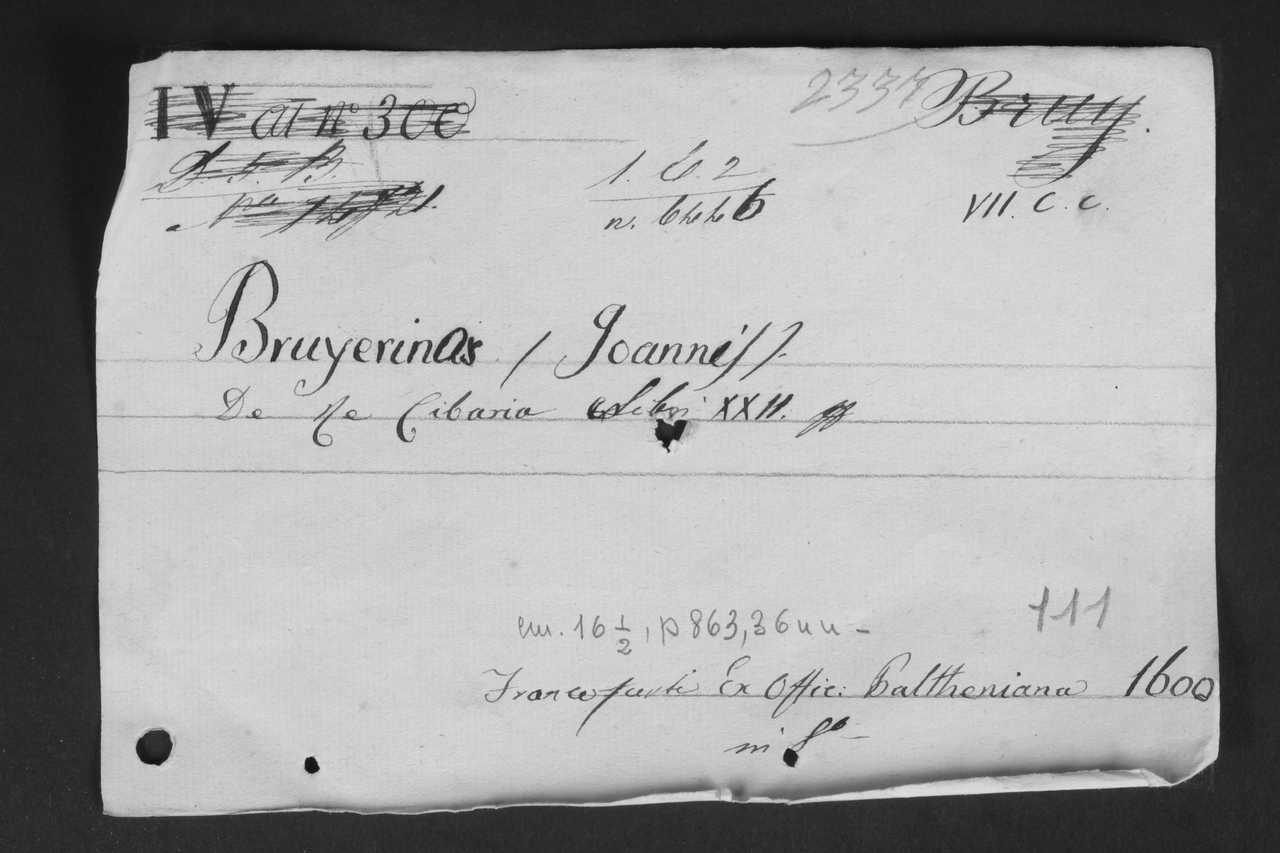 IV at nº 300 2337 Bruy.
D. F. B. 1. C. 2
VII. C. c.
Bruyerinus / Joannes /.
De Re Cibaria Libri XXII.
cm. 16 1/2, p 863, 36 nn - 111
Francofurti Ex Offic: Paltheniana 1600
in 8º